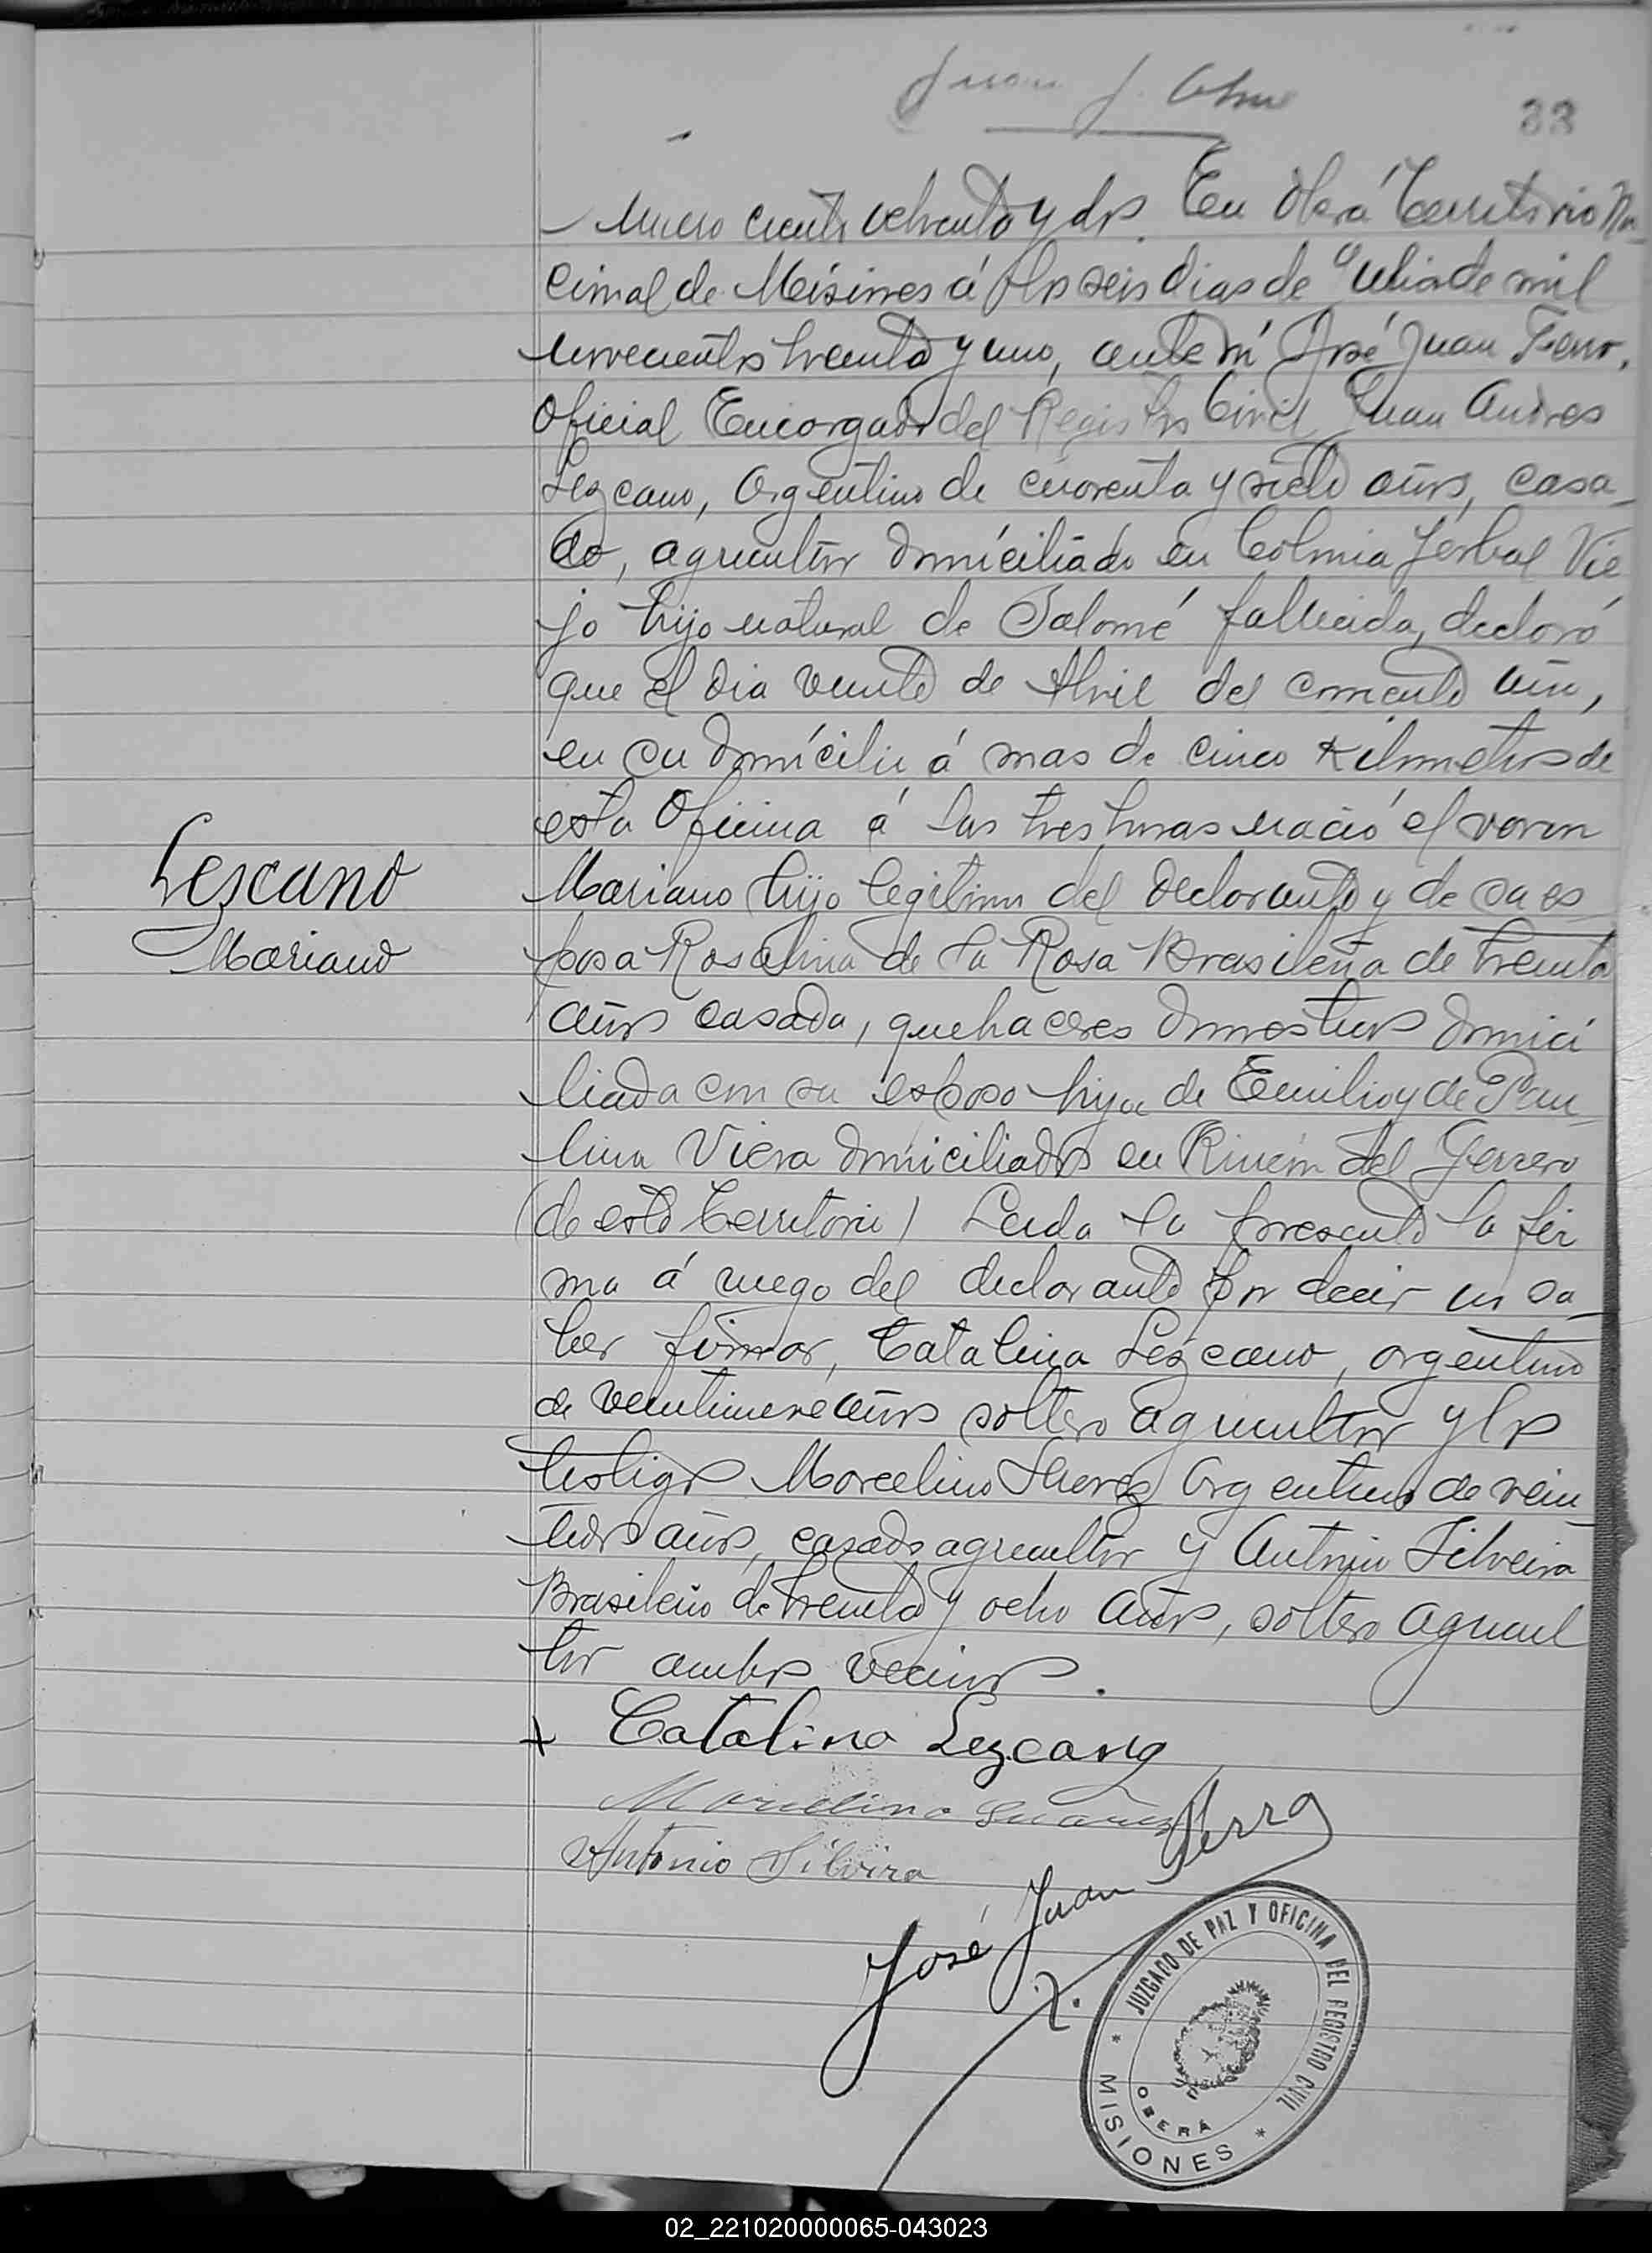 33
Número ciento ochenta y dos. En Oberá Territorio Na-
cional de Misiones á los seis dias de Julio de mil
novecientos treinta y uno, ante mi José Juan Ferro,
Oficial Encargado del Registro Civil Juan Andres
Lezcano, Argentino de cuarenta y siete años, casa-
do, agricultor domiciliado en Colonia Yerbal Vie
jo hijo natural de Salomé fallecida, declaró
que el dia veinte de Abril del corriente año,
en su domicilio á mas de cinco Kilometros de
esta Oficina á las tres horas nació el varon
Lezcano
Mariano hijo legitimo del declarante y de su es-
Mariano
posa Rosalina de la Rosa Brasileña de treinta
años casada, quehaceres domesticos domici
liada con su esposo hija de Emilio y de Pau
lina Viera domiciliados en Rincón del
(de este Territorio) Leida la presente la fir
ma á ruego del declarante por decir no sa-
ber firmar, Catalino Lezcano, argentino
de veintinueve años soltero agricultor y los
testigos Marcelino Suarez Argentino de vein-
tidos años, casado agricultor y Antonio Silveira
Brasileño de treinta y ocho años, soltero agricul
tor ambos vecinos.
+ Catalino Lezcano
Marcelino Suarez
Antonio Silvira
José Juan Ferro
JUZGADO DE PAZ Y OFICINA DEL REGISTRO CIVIL
OBERÁ
* MISIONES *
02_221020000065-043023